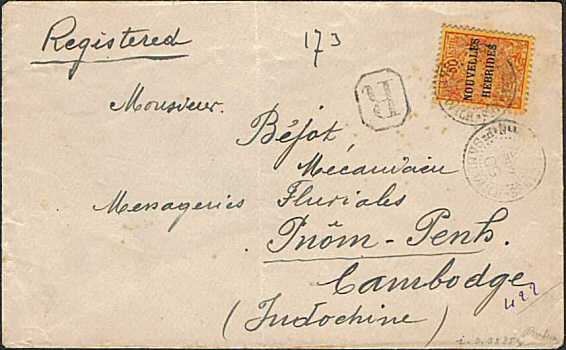 Registered
173
50
NOUVELLES
HEBRIDES
R
Monsieur
Béjot
Mécanicien
Messageries Fluviales
Pnôm-Penh.
Cambodge
422
(Indochine)